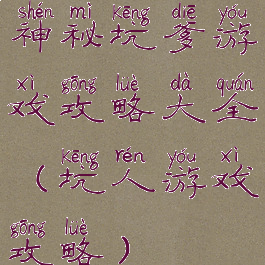 shén mì kēng diē yóu
神秘坑爹游
xì gōng lüè dà quán
戏攻略大全
kēng rén yóu xì
（坑人游戏
gōng lüè
攻略）